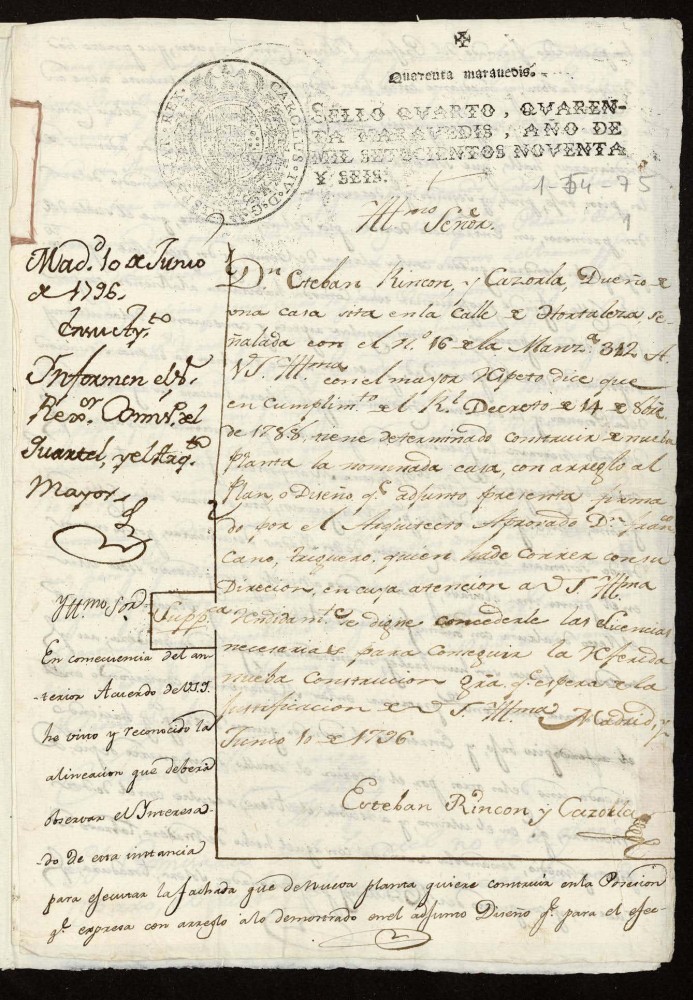 Quarenta maravedis.
SELLO QVARTO, QVAREN-
TA MARAVEDIS, AÑO DE
MIL SETECIENTOS NOVENTA
Y SEIS.
CAROLUS IV D G HISPANIAR REX
1-54-75
1
Yll.mo Señor.
Mad.d 10 de Junio
de 1796.
En su Ay.to
Informen el S.r
Rex.or Comis.o del
Quartel, y el Arq.to
Mayor
D.n Esteban Rincon, y Cazorla, Dueño de
una casa sita en la calle de Hortaleza se-
ñalada con el N.o 16 de la Manz.a 342 A
V.S. Yll.ma con el mayor respeto dice que
en cumplim.to de el R.l Decreto de 14 de 8bre
de 1788, tiene determinado construir de nueba
Planta la nominada casa, con arreglo al
Plan, o Diseño q.e adjunto presenta firma
do por el Arquitecto Aprovado D.n Fran.co
Cano, Triguero, quien ha de correr con su
Direcion, en cuya atencion a V.S. Yll.ma
Supp.ca rendidam.te se digne concederle las licencias
necesarias para conseguir la referida
nueba Construcion gra. q.e espera de la
Justificacion de V.S. Yll.ma Madrid, y
Junio 10 de 1796
Esteban Rincon y Cazorla
Yll.mo Sor.
En consecuencia del an-
terior Acuerdo de V.S.Y.
he visto y reconocido la
alineacion que deberá
observar el Interesa-
do de esta instancia
para executar la fachada que de nueva planta quiere construir en la Posesion
q.e expresa con arreglo a lo demostrado en el adjunto Diseño q.e para el efec-